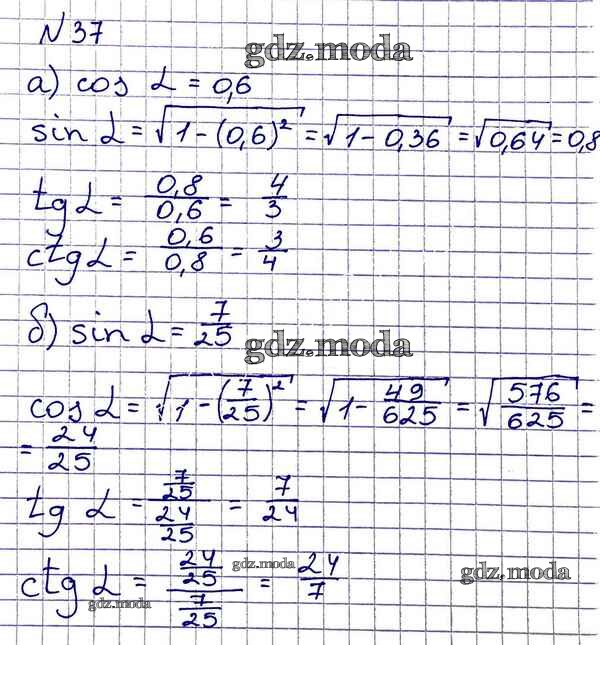 N 37
gdz.moda
а) cos α = 0,6
sin α = √(1-(0,6)²) = √(1-0,36) = √(0,64) = 0,8
tg α = 0,8/0,6 = 4/3
ctg α = 0,6/0,8 = 3/4
б) sin α = 7/25
gdz.moda
cos α = √(1-(7/25)²) = √(1-49/625) = √(576/625) =
= 24/25
tg α = (7/25)/(24/25) = 7/24
ctg α = (24/25)/(7/25) = 24/7
gdz.moda
gdz.moda
gdz.moda